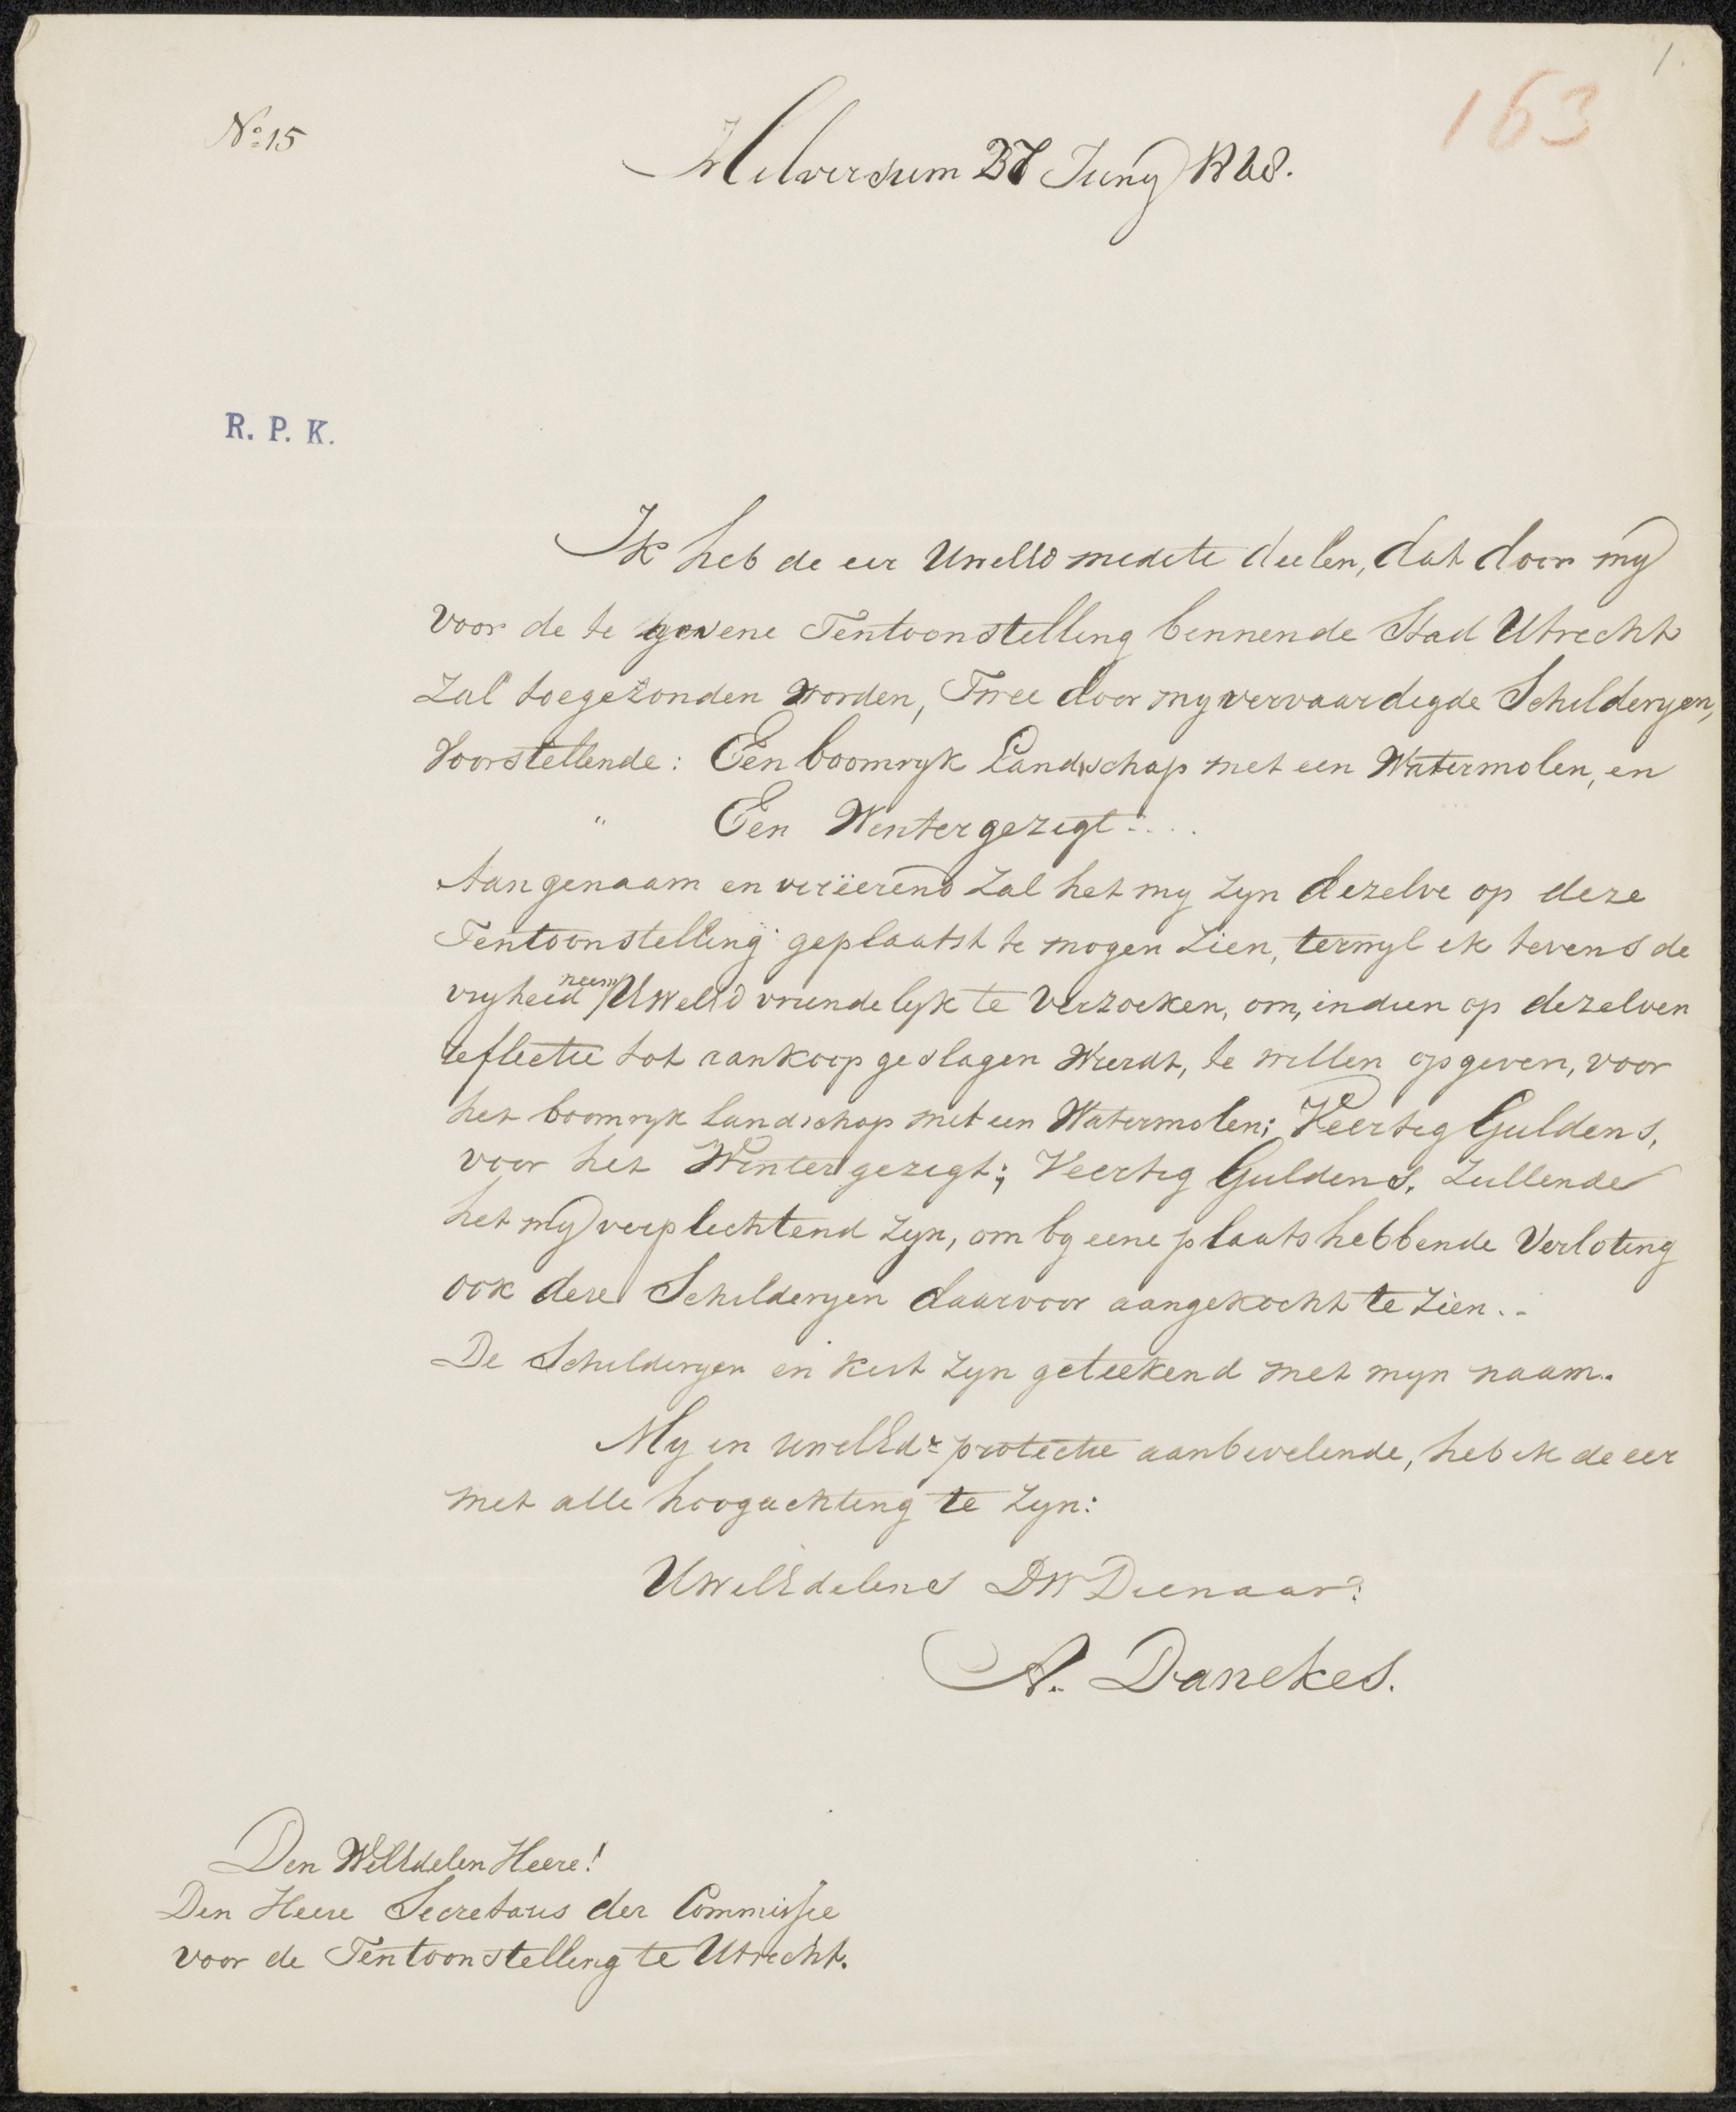 1.
163
Nº 15
Hilversum 27 Juny 1828.
R. P. K.
Ik heb de eer UwelEd medete deelen, dat door my
voor de te gevene Tentoonstelling binnende Stad Utrecht
zal toegezonden worden, Twee door my vervaardigde Schilderyen,
Voorstellende: Een boomryk Landschap met een Watermolen, en
" Een Wintergezigt....
Aangenaam en vereerend zal het my zyn dezelve op deze
Tentoonstelling geplaatst te mogen zien, terwyl ik tevens de
vryheid neem UwelEd vriendelyk te verzoeken, om, indien op dezelven
reflectie tot aankoop geslagen wierdt, te willen opgeven, voor
het boomryk landschap met een Watermolen; Veertig Guldens,
voor het Wintergezigt; Veertig Guldens. Zullende
het my verplichtend zyn, om by eene plaats hebbende Verloting
ook deze Schilderyen daarvoor aangekocht te zien.-
De Schilderyen en kist zyn geteekend met myn naam.
My in uwelEdr protectie aanbevelende, heb ik de eer
met alle hoogachting te zyn:
UwelEdelens DW Dienaar:
A. Danekes.
Den WelEdelen Heere!
Den Heere Secretaris der Commissie
voor de Tentoonstelling te Utrecht.